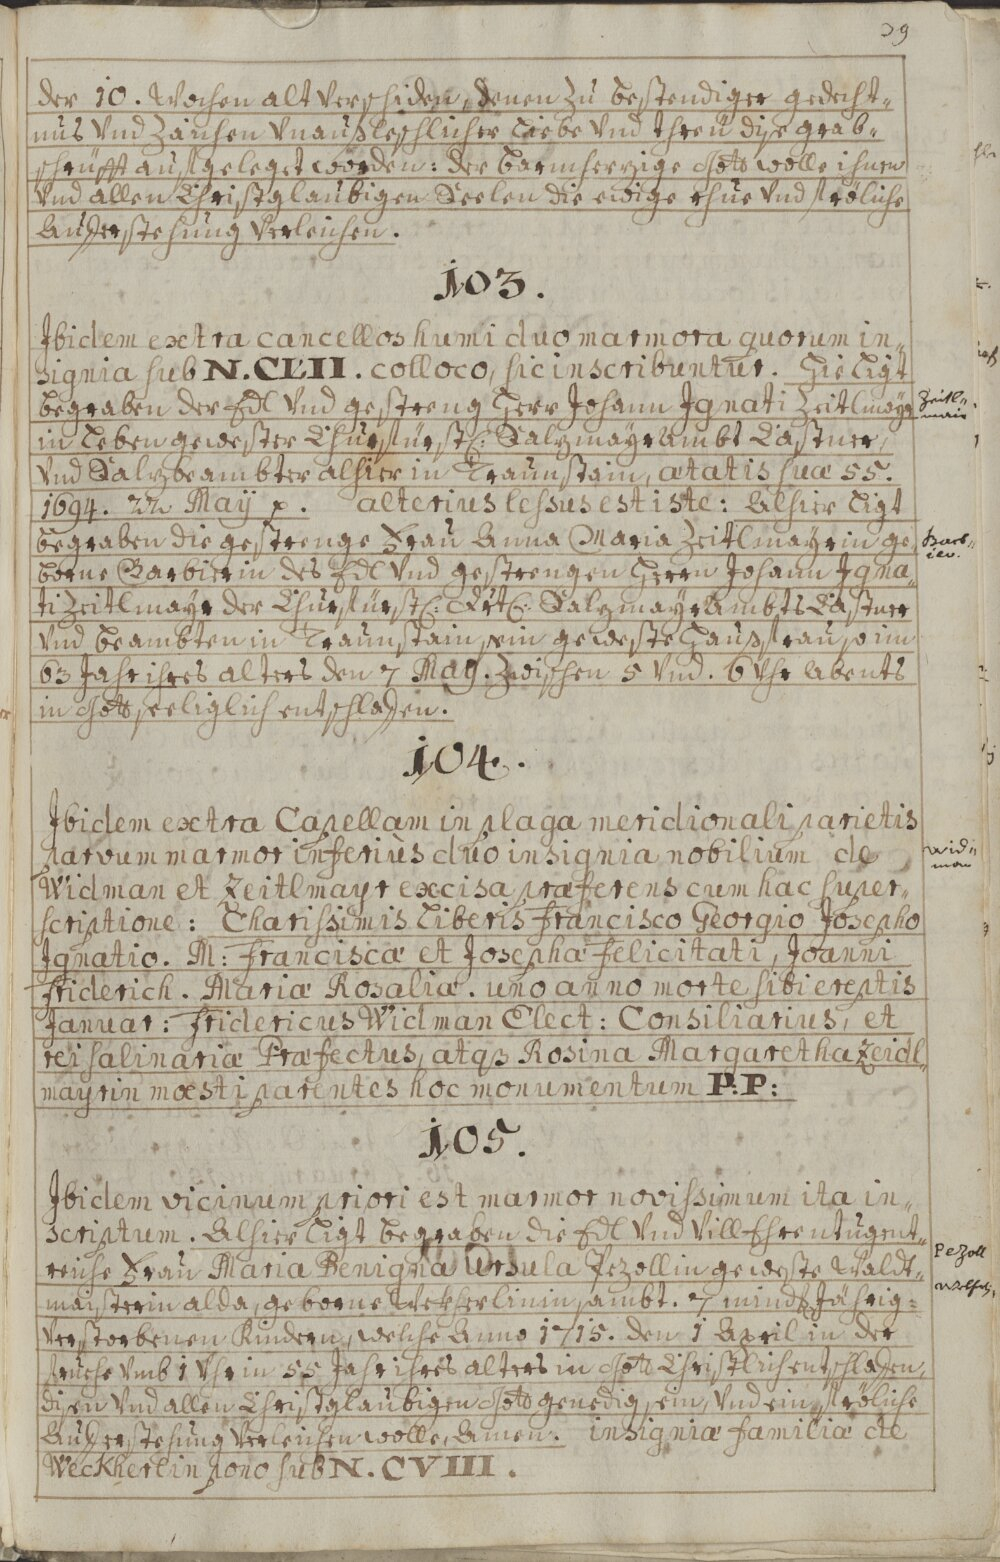 39
der 10. Wochen alt verschiden, denen zu bestendiger gedecht-
nus vnd zaichen vnaußleschlicher Liebe vnd threü dise grab-
schrüfft auffgeleget worden: der barmherzige Gott wolle ihnen
vnd allen Christglaubigen Seelen die ewige rhue vnd fröliche
Aufferstehung verleichen.
103.
Ibidem extra cancellos humi duo marmora quorum in-
signia sub N. CVII. colloco, sic inscribuntur. Hie Ligt
begraben der Edl vnd gestreng Herr Johann Ignati Zeitlmayr
Zeitl-
mair
in Leben gewester Churfürstl: Salzmayrambt Castner,
vnd Salzbeambter alhier in Traunstain, ætatis suæ 55.
1694. 22 May p. alterius lessus est iste: Alhier Ligt
begraben die gestrenge Frau Anna Maria Zeitlmayrin ge-
Barb-
ier.
borne Barbierin des Edl vnd gestrengen Herrn Johann Igna-
ti Zeitlmayr der Churfürstl: Drtl: Salzmayrambts Castner
vnd beambten in Traunstain, sein geweste Haußfrau so im
63 Jahr ihres alters den 7 May. zwischen 5 vnd. 6 Vhr Abents
in Gott seeliglich entschlaffen.
104.
Ibidem extra Capellam in plaga meridionali parietis
parvum marmor inferius duo insignia nobilium de
Wid-
man
Widman et Zeitlmayr excisa præferens cum hac super-
scriptione: Charissimis Liberis Francisco Georgio Josepho
Ignatio. M: Franciscæ et Josephæ Felicitati, Joanni
Friderich. Mariæ Rosaliæ. uno anno morte sibi ereptis
Januar: Fridericus Widman Elect: Consiliarius, et
rei salinariæ Præfectus, atqs Rosina Margaretha Zeidl-
mayrin mœsti parentes hoc monumentum P: P:
105.
Ibidem vicinum priori est marmor novissimum ita in-
scriptum. Alhier Ligt begraben die Edl vnd Vill Ehren tugent-
reiche Frau Maria Benigna Ursula Pezollin geweste Waldt-
Pezoll
maisterin alda, geborne Wekherlinin, sambt. 7 mindj Jährig-
verstorbenen Kindern, welche Anno 1715. den 1 April in der
fruehe vmb 1 Vhr in 55 Jahr ihres alters in Gott Christlich entschlaffen,
disen vnd allen Christglaubigen Gott genedig sein, vnd ein fröliche
Aufferstehung verleichen wolle, Amen. insigniæ familiæ de
Weckherlin pono sub N. CVIII.